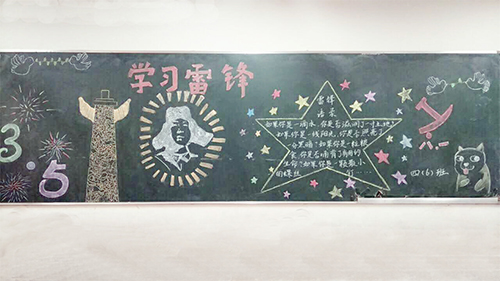 学习雷锋
3.5
雷锋
语录
如果你是一滴水，你是否滋润了一寸土地
如果你是一线阳光，你是否照亮了
一分黑暗？如果你是一粒粮
食，你是否哺育了有用的
生命？如果你是一颗最小
的螺丝钉……
八一
四(6)班